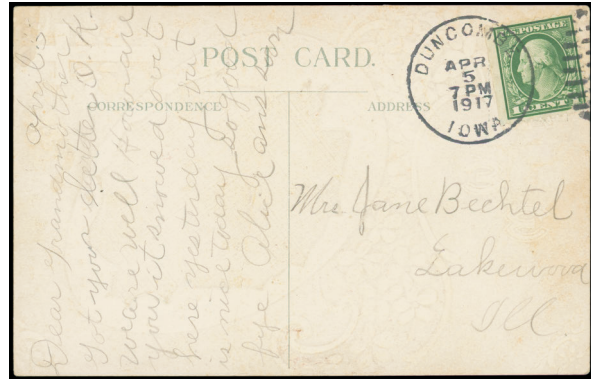 POST CARD.
CORRESPONDENCE
ADDRESS
DUNCOMBE
APR
5
7 PM
1917
IOWA
U.S. POSTAGE
1 CENT 1
April 5
Dear Grandmother
Got your letter O.K.
We are well & how are
you it snowed out
here yesterday but
is nice today so good
bye
Mrs Jane Bechtel
Lakewood
Ill.